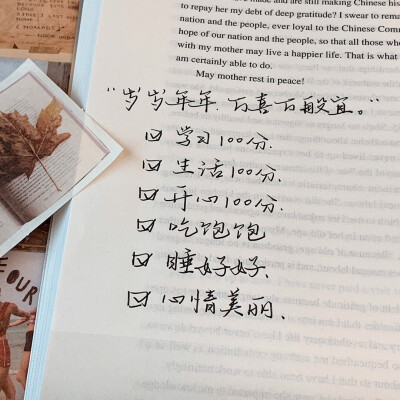 to repay her my debt of deep gratitude? I swear to rema
nation and the people, ever loyal to the Chinese Comm
hope of our nation and the people, so that all those wh
with my mother may live a happier life. That is what
am certainly able to do.
May mother rest in peace!
“岁岁年年,万喜万般宜。”
☑ 学习100分.
☑ 生活100分.
☑ 开心100分.
☑ 吃饱饱
☑ 睡好好.
☑ 心情美丽.
OUR